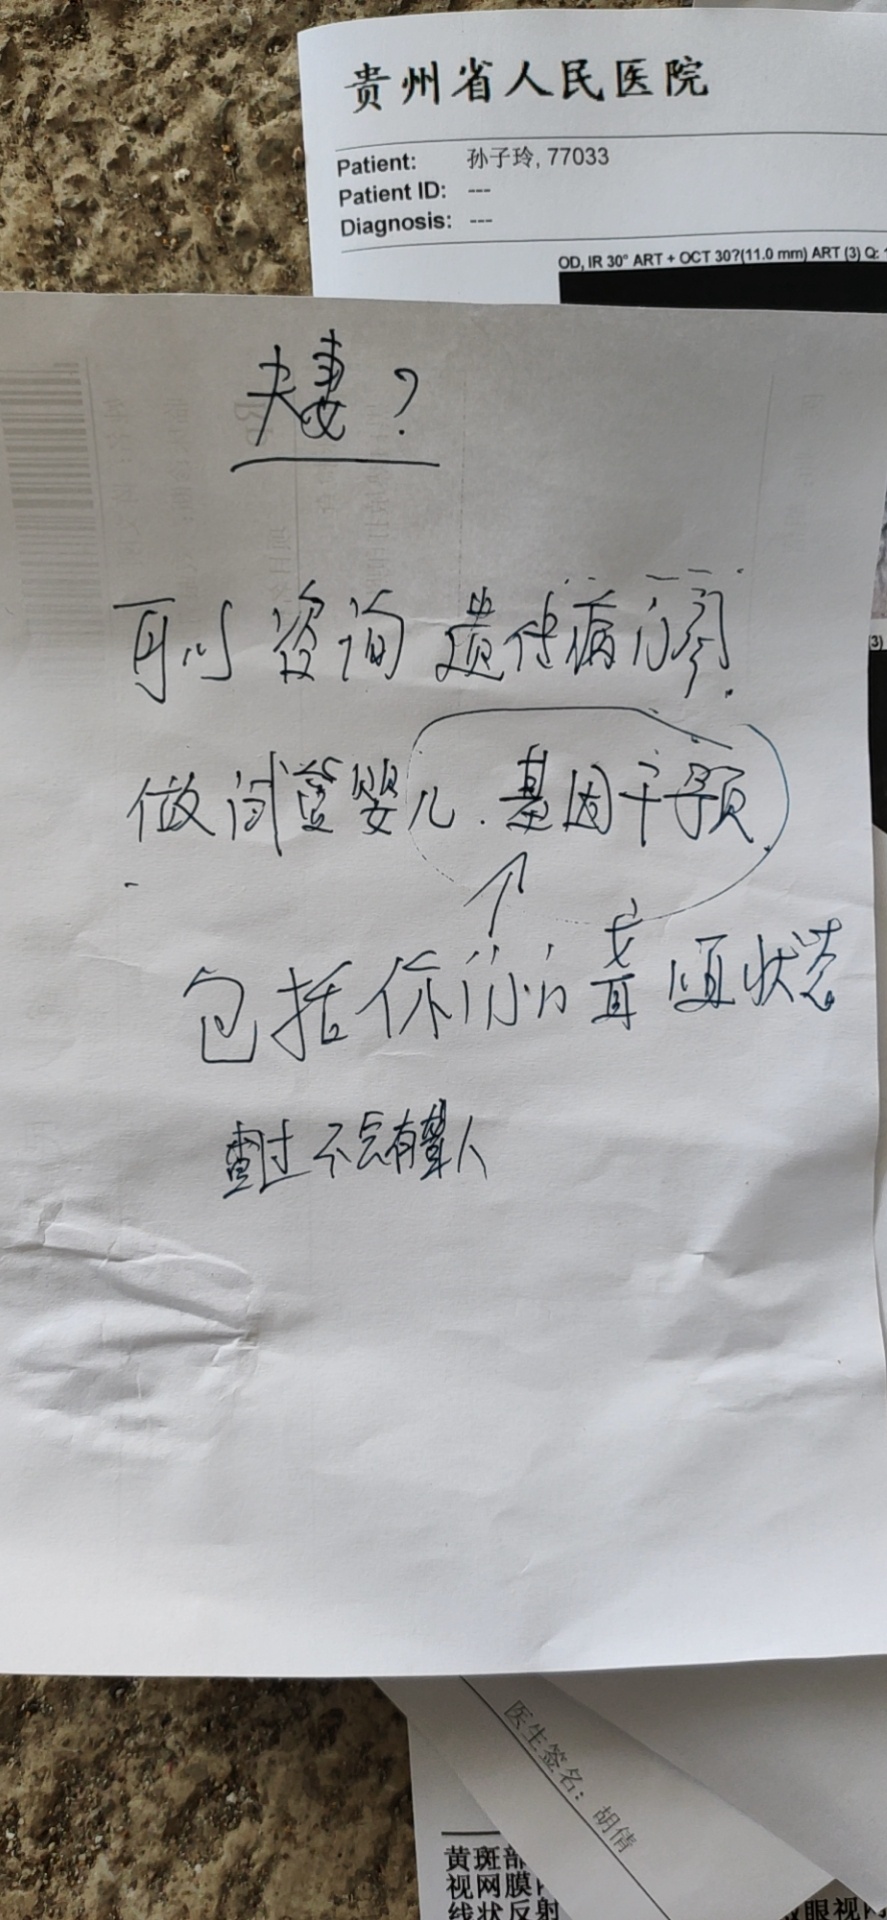 贵州省人民医院
Patient: 孙子玲, 77033
Patient ID: ---
Diagnosis: ---
OD, IR 30° ART + OCT 30?(11.0 mm) ART (3) Q:
夫妻?
可以咨询遗传病诊断.
做试管婴儿.基因干预
包括你们的聋哑状态
查过不会有聋人
3)
医生签名: 胡倩
黄斑部
视网膜
线状反射
眼视网